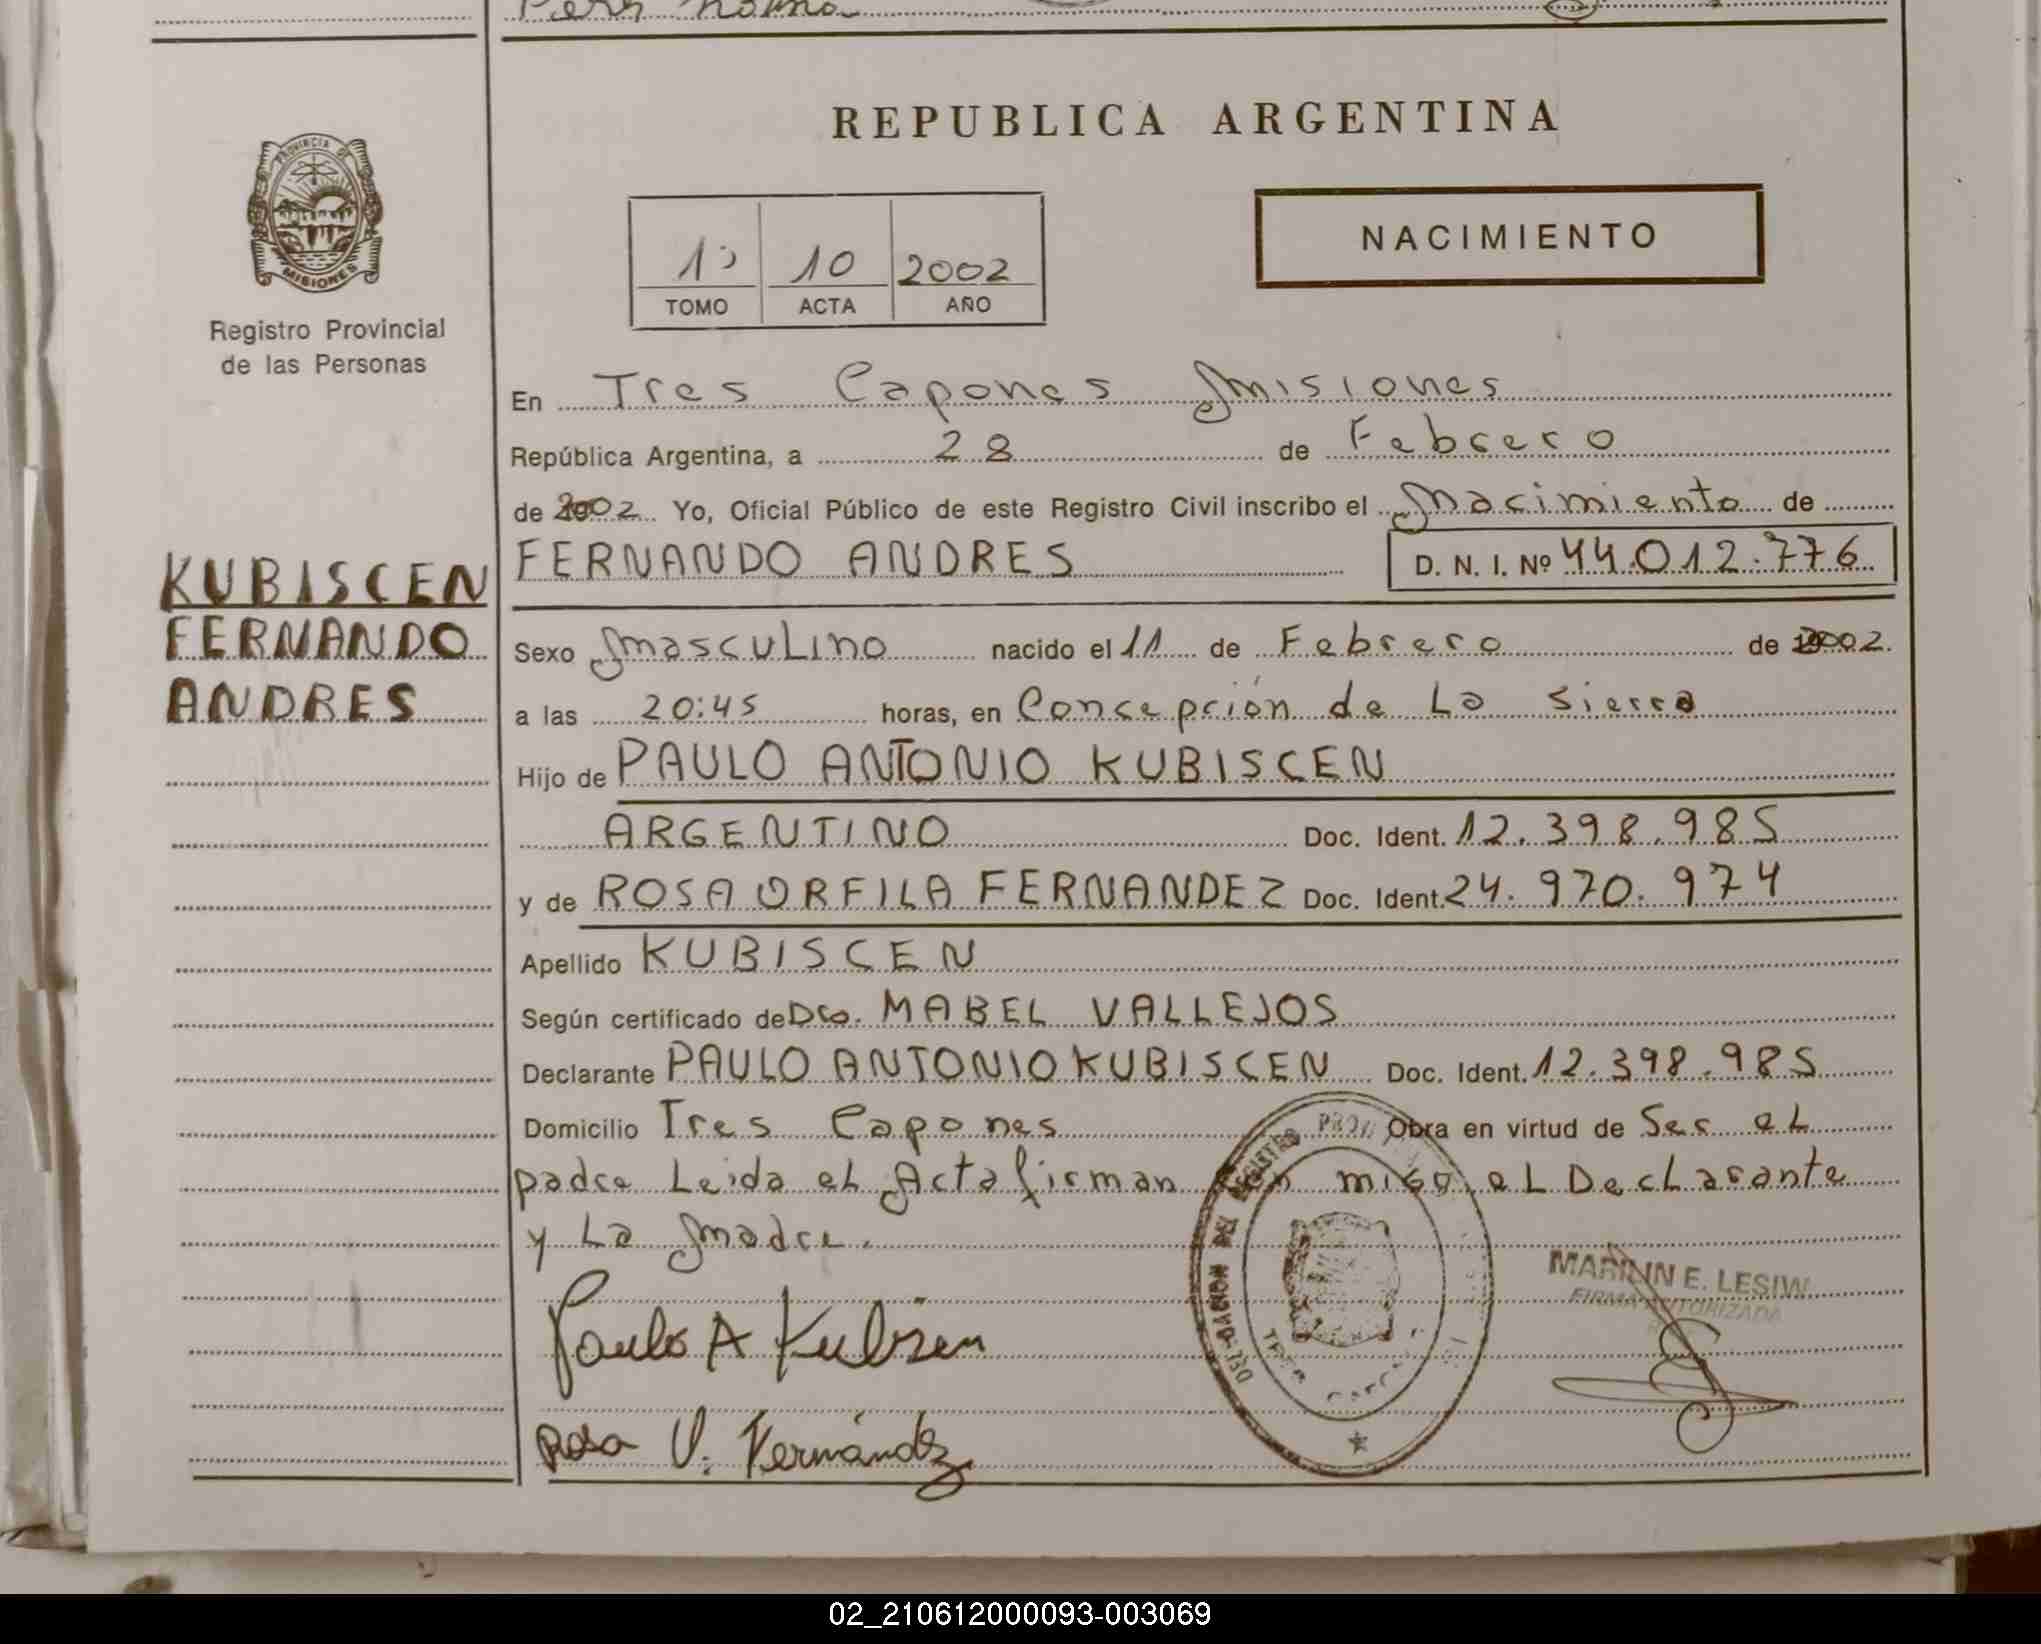 REPUBLICA ARGENTINA
PROVINCIA DE
MISIONES
Registro Provincial
de las Personas
1º 10 2002
TOMO ACTA AÑO
NACIMIENTO
En Tres Capones Misiones
República Argentina, a 28 de Febrero
de 2002 Yo, Oficial Público de este Registro Civil inscribo el Nacimiento de
FERNANDO ANDRES D. N. I. Nº 44.012.776
KUBISCEN
FERNANDO
ANDRES
Sexo Masculino nacido el 11 de Febrero de 2002.
a las 20:45 horas, en Concepción de La Sierra
Hijo de PAULO ANTONIO KUBISCEN
ARGENTINO Doc. Ident. 12.398.985
y de ROSA ORFILA FERNANDEZ Doc. Ident. 24.970.974
Apellido KUBISCEN
Según certificado de Dra. MABEL VALLEJOS
Declarante PAULO ANTONIO KUBISCEN Doc. Ident. 12.398.985
Domicilio Tres Capones Obra en virtud de Ser el
padre Leida el Acta firman migo el Declarante
y La Madre.
MARILIN E. LESIW
FIRMA AUTORIZADA
Paulo A Kubisen
Rosa Fernández
DELEGACION DEL REGISTRO
02_210612000093-003069